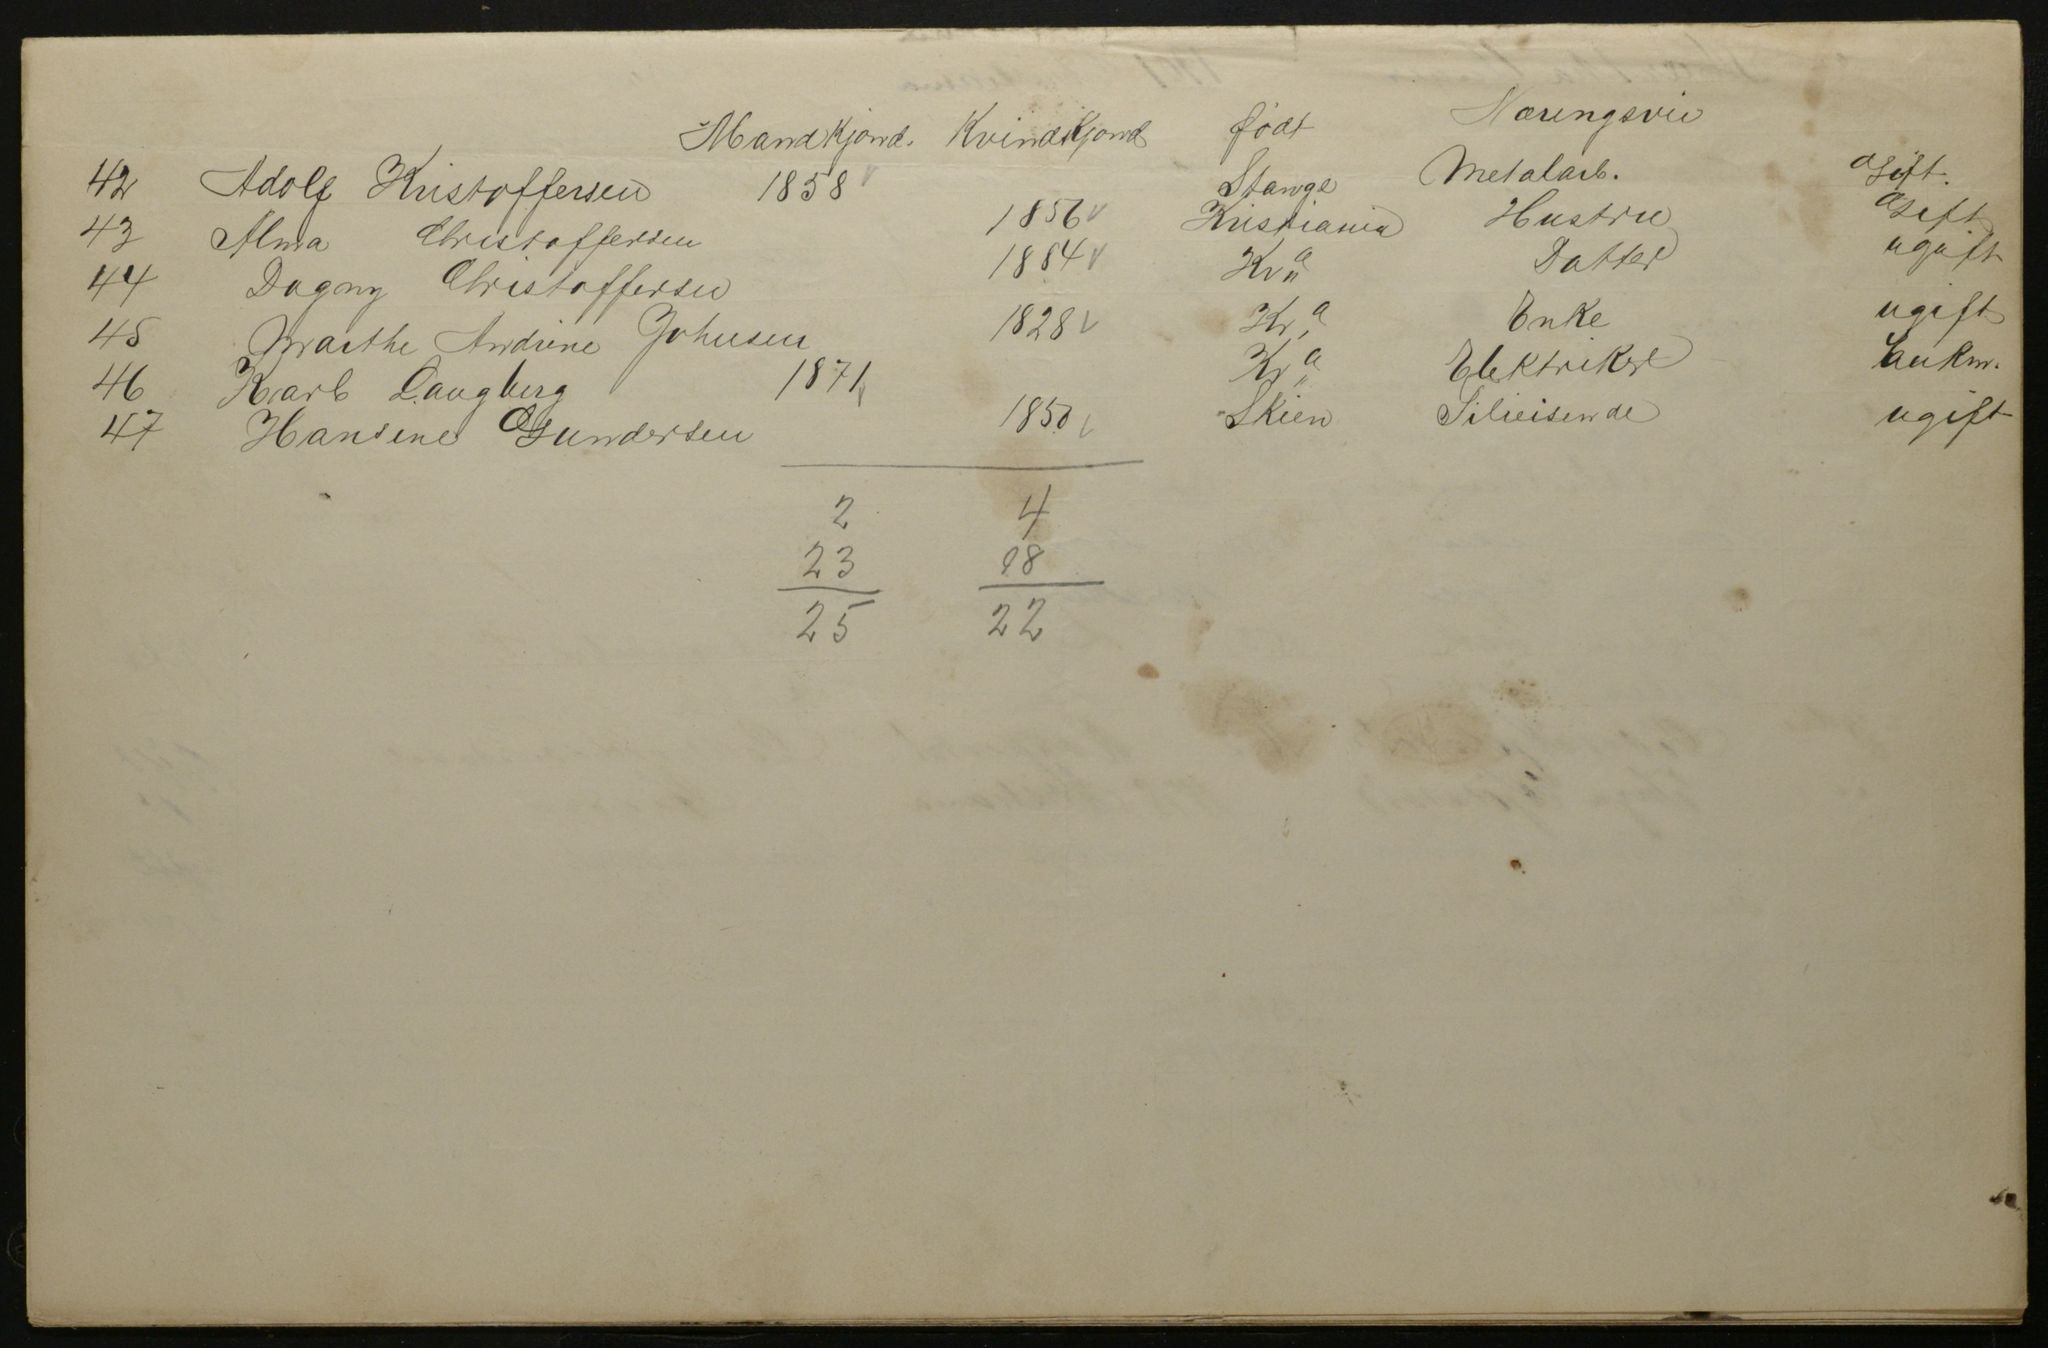 Mandkjønd. Kvindkjønd født Næringsvei
42 Adolf Kristoffersen 1858 Stange Metalarb. Gift.
43 Alma Christoffersen 1856 Kristiania Hustru Gift
44 Dagny Christoffersen 1884 Kr.a Datter ugift
45 Marthe Andrine Johnsen 1828 Kr.a Enke ugift
46 Karl Langberg 1871 Kr.a Elektriker
47 Hansine Gundersen 1850 Skien ugift
2 4
23 18
25 22